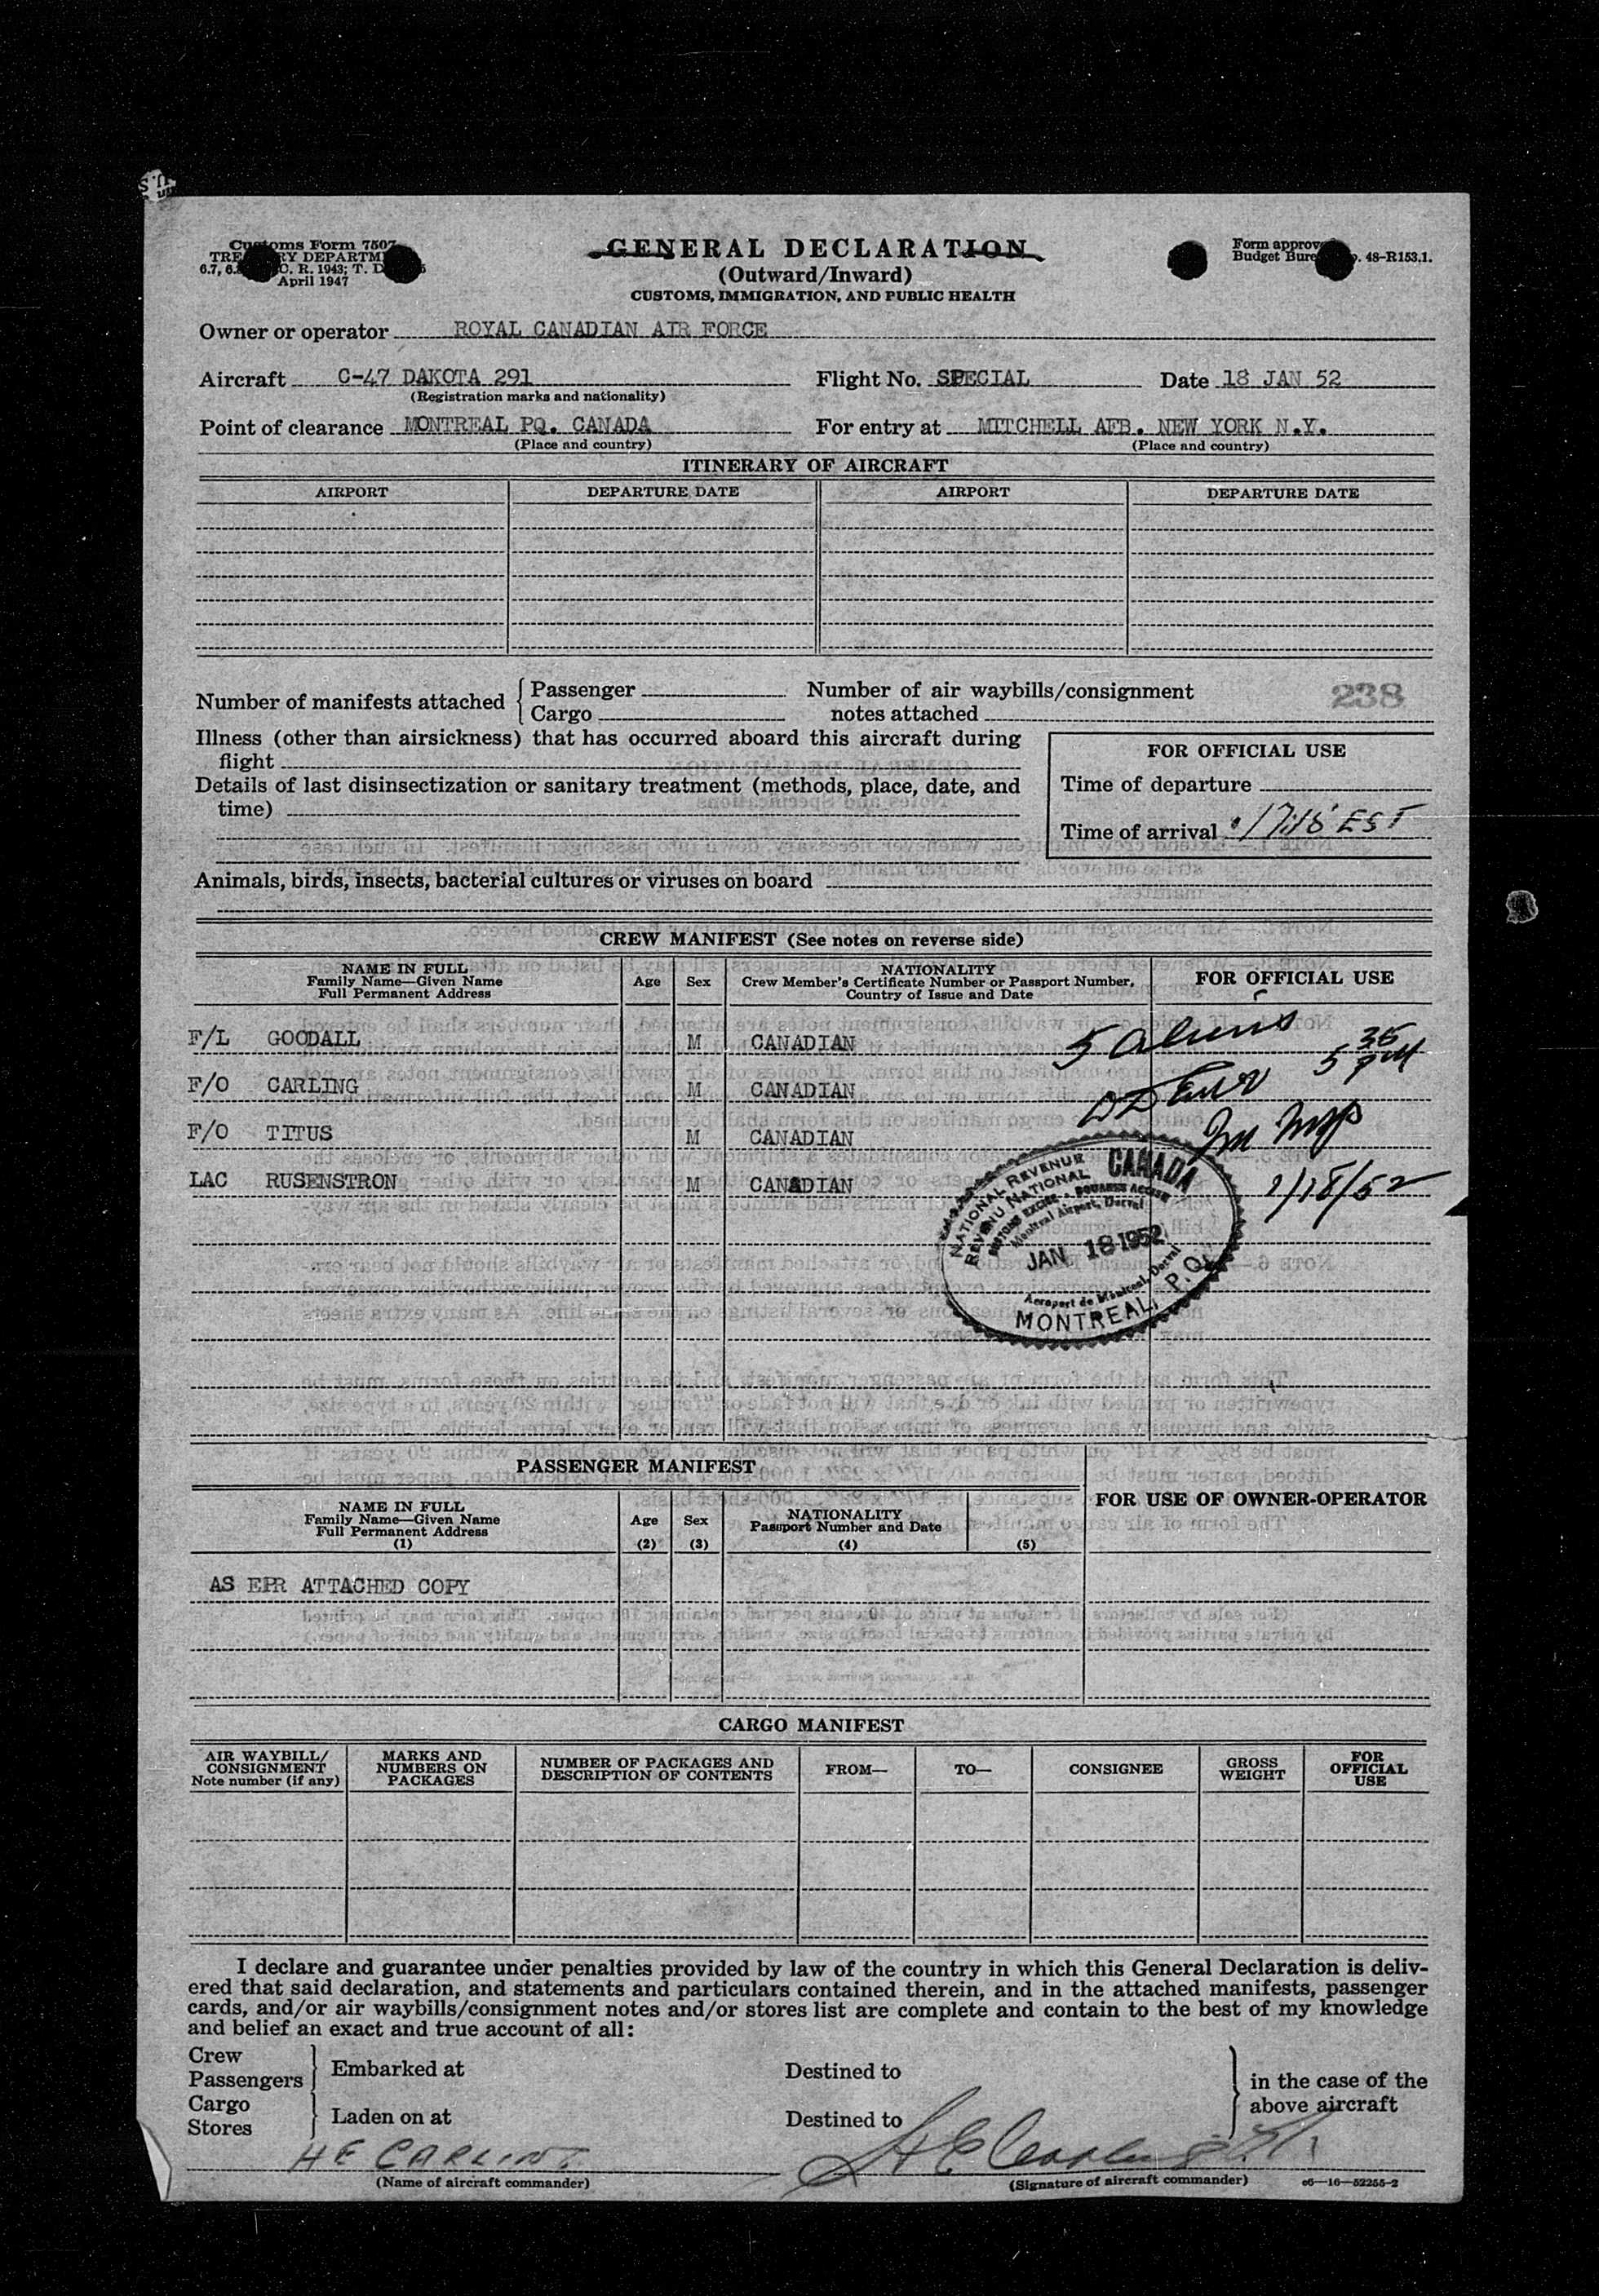 Customs Form 7507
TREASURY DEPARTMENT
6.7, C. R. 1943; T. D.
April 1947
GENERAL DECLARATION
(Outward/Inward)
CUSTOMS, IMMIGRATION, AND PUBLIC HEALTH
Form approved
Budget Bureau No. 48-R153.1.
Owner or operator ROYAL CANADIAN AIR FORCE
Aircraft C-47 DAKOTA 291 Flight No. SPECIAL Date 18 JAN 52
(Registration marks and nationality)
Point of clearance MONTREAL PQ. CANADA For entry at MITCHELL AFB. NEW YORK N.Y.
(Place and country) (Place and country)
ITINERARY OF AIRCRAFT
AIRPORT DEPARTURE DATE AIRPORT DEPARTURE DATE
Number of manifests attached { Passenger
Cargo
Number of air waybills/consignment
notes attached
238
Illness (other than airsickness) that has occurred aboard this aircraft during
flight
Details of last disinsectization or sanitary treatment (methods, place, date, and
time)
FOR OFFICIAL USE
Time of departure
Time of arrival EST
Animals, birds, insects, bacterial cultures or viruses on board
CREW MANIFEST (See notes on reverse side)
NAME IN FULL
Family Name—Given Name
Full Permanent Address
Age
Sex
NATIONALITY
Crew Member's Certificate Number or Passport Number,
Country of Issue and Date
FOR OFFICIAL USE
F/L GOODALL M CANADIAN 5 Aliens 5 35 PM
F/O CARLING M CANADIAN
F/O TITUS M CANADIAN
LAC RUSENSTRON M CANADIAN 1/18/52
NATIONAL REVENUE CANADA
REVENU NATIONAL
CUSTOMS EXCISE - DOUANES ACCISE
Montreal Airport, Dorval
JAN 18 1952
Aeroport de Montreal, Dorval
MONTREAL, P.Q.
PASSENGER MANIFEST
NAME IN FULL
Family Name—Given Name
Full Permanent Address
(1)
Age
(2)
Sex
(3)
NATIONALITY
Passport Number and Date
(4)
(5)
FOR USE OF OWNER-OPERATOR
AS EPR ATTACHED COPY
CARGO MANIFEST
AIR WAYBILL/
CONSIGNMENT
Note number (if any)
MARKS AND
NUMBERS ON
PACKAGES
NUMBER OF PACKAGES AND
DESCRIPTION OF CONTENTS
FROM—
TO—
CONSIGNEE
GROSS
WEIGHT
FOR
OFFICIAL
USE
I declare and guarantee under penalties provided by law of the country in which this General Declaration is deliv-
ered that said declaration, and statements and particulars contained therein, and in the attached manifests, passenger
cards, and/or air waybills/consignment notes and/or stores list are complete and contain to the best of my knowledge
and belief an exact and true account of all:
Crew
Passengers } Embarked at Destined to
Cargo
Stores } Laden on at Destined to
} in the case of the
above aircraft
HE CARLING
(Name of aircraft commander) (Signature of aircraft commander) c6—16—52255-2